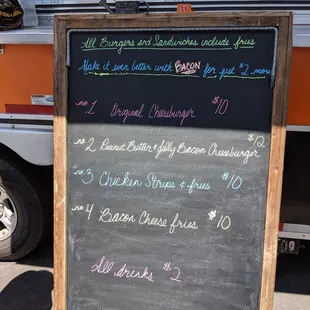 All Burgers and Sandwiches include fries
Make it even better with BACON for just $2 more
no. 1 Original Cheeseburger $10
no. 2 Peanut Butter & Jelly Bacon Cheeseburger $12
no. 3 Chicken Strips & fries $10
no. 4 Bacon Cheese fries $10
All drinks $2